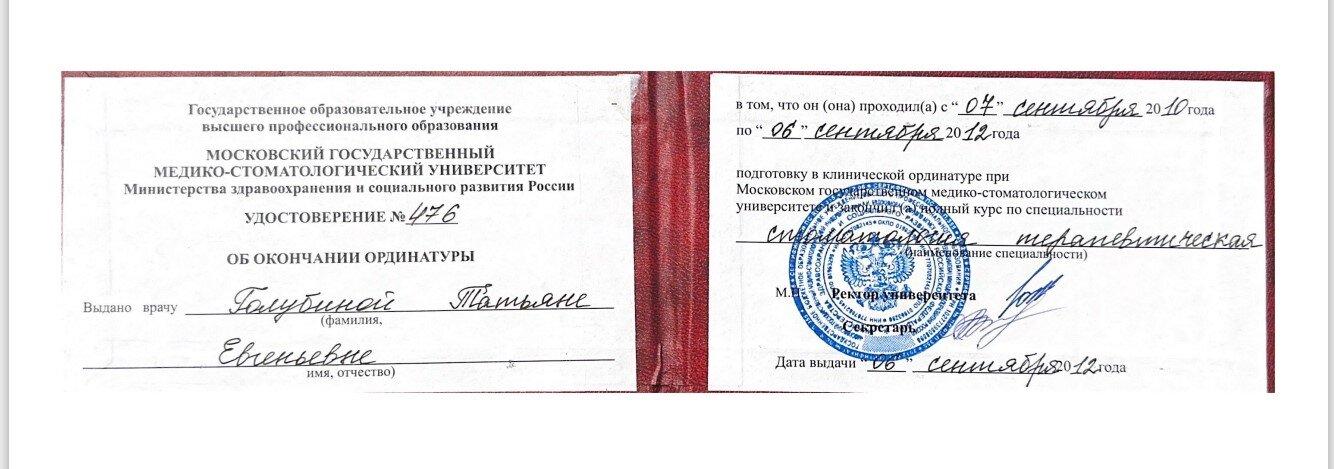 Государственное образовательное учреждение
высшего профессионального образования
МОСКОВСКИЙ ГОСУДАРСТВЕННЫЙ
МЕДИКО-СТОМАТОЛОГИЧЕСКИЙ УНИВЕРСИТЕТ
Министерства здравоохранения и социального развития России
УДОСТОВЕРЕНИЕ № 476
ОБ ОКОНЧАНИИ ОРДИНАТУРЫ
Выдано врачу Голубиной Татьяне
(фамилия,
Евгеньевне
имя, отчество)
в том, что он (она) проходил(а) с “ 07 ” сентября 2010 года
по “ 06 ” сентября 2012 года
подготовку в клинической ординатуре при
Московском государственном медико-стоматологическом
университете и закончил (а) полный курс по специальности
стоматология терапевтическая
(наименование специальности)
М.П. Ректор университета
Секретарь
Дата выдачи “ 06 ” сентября 2012 года